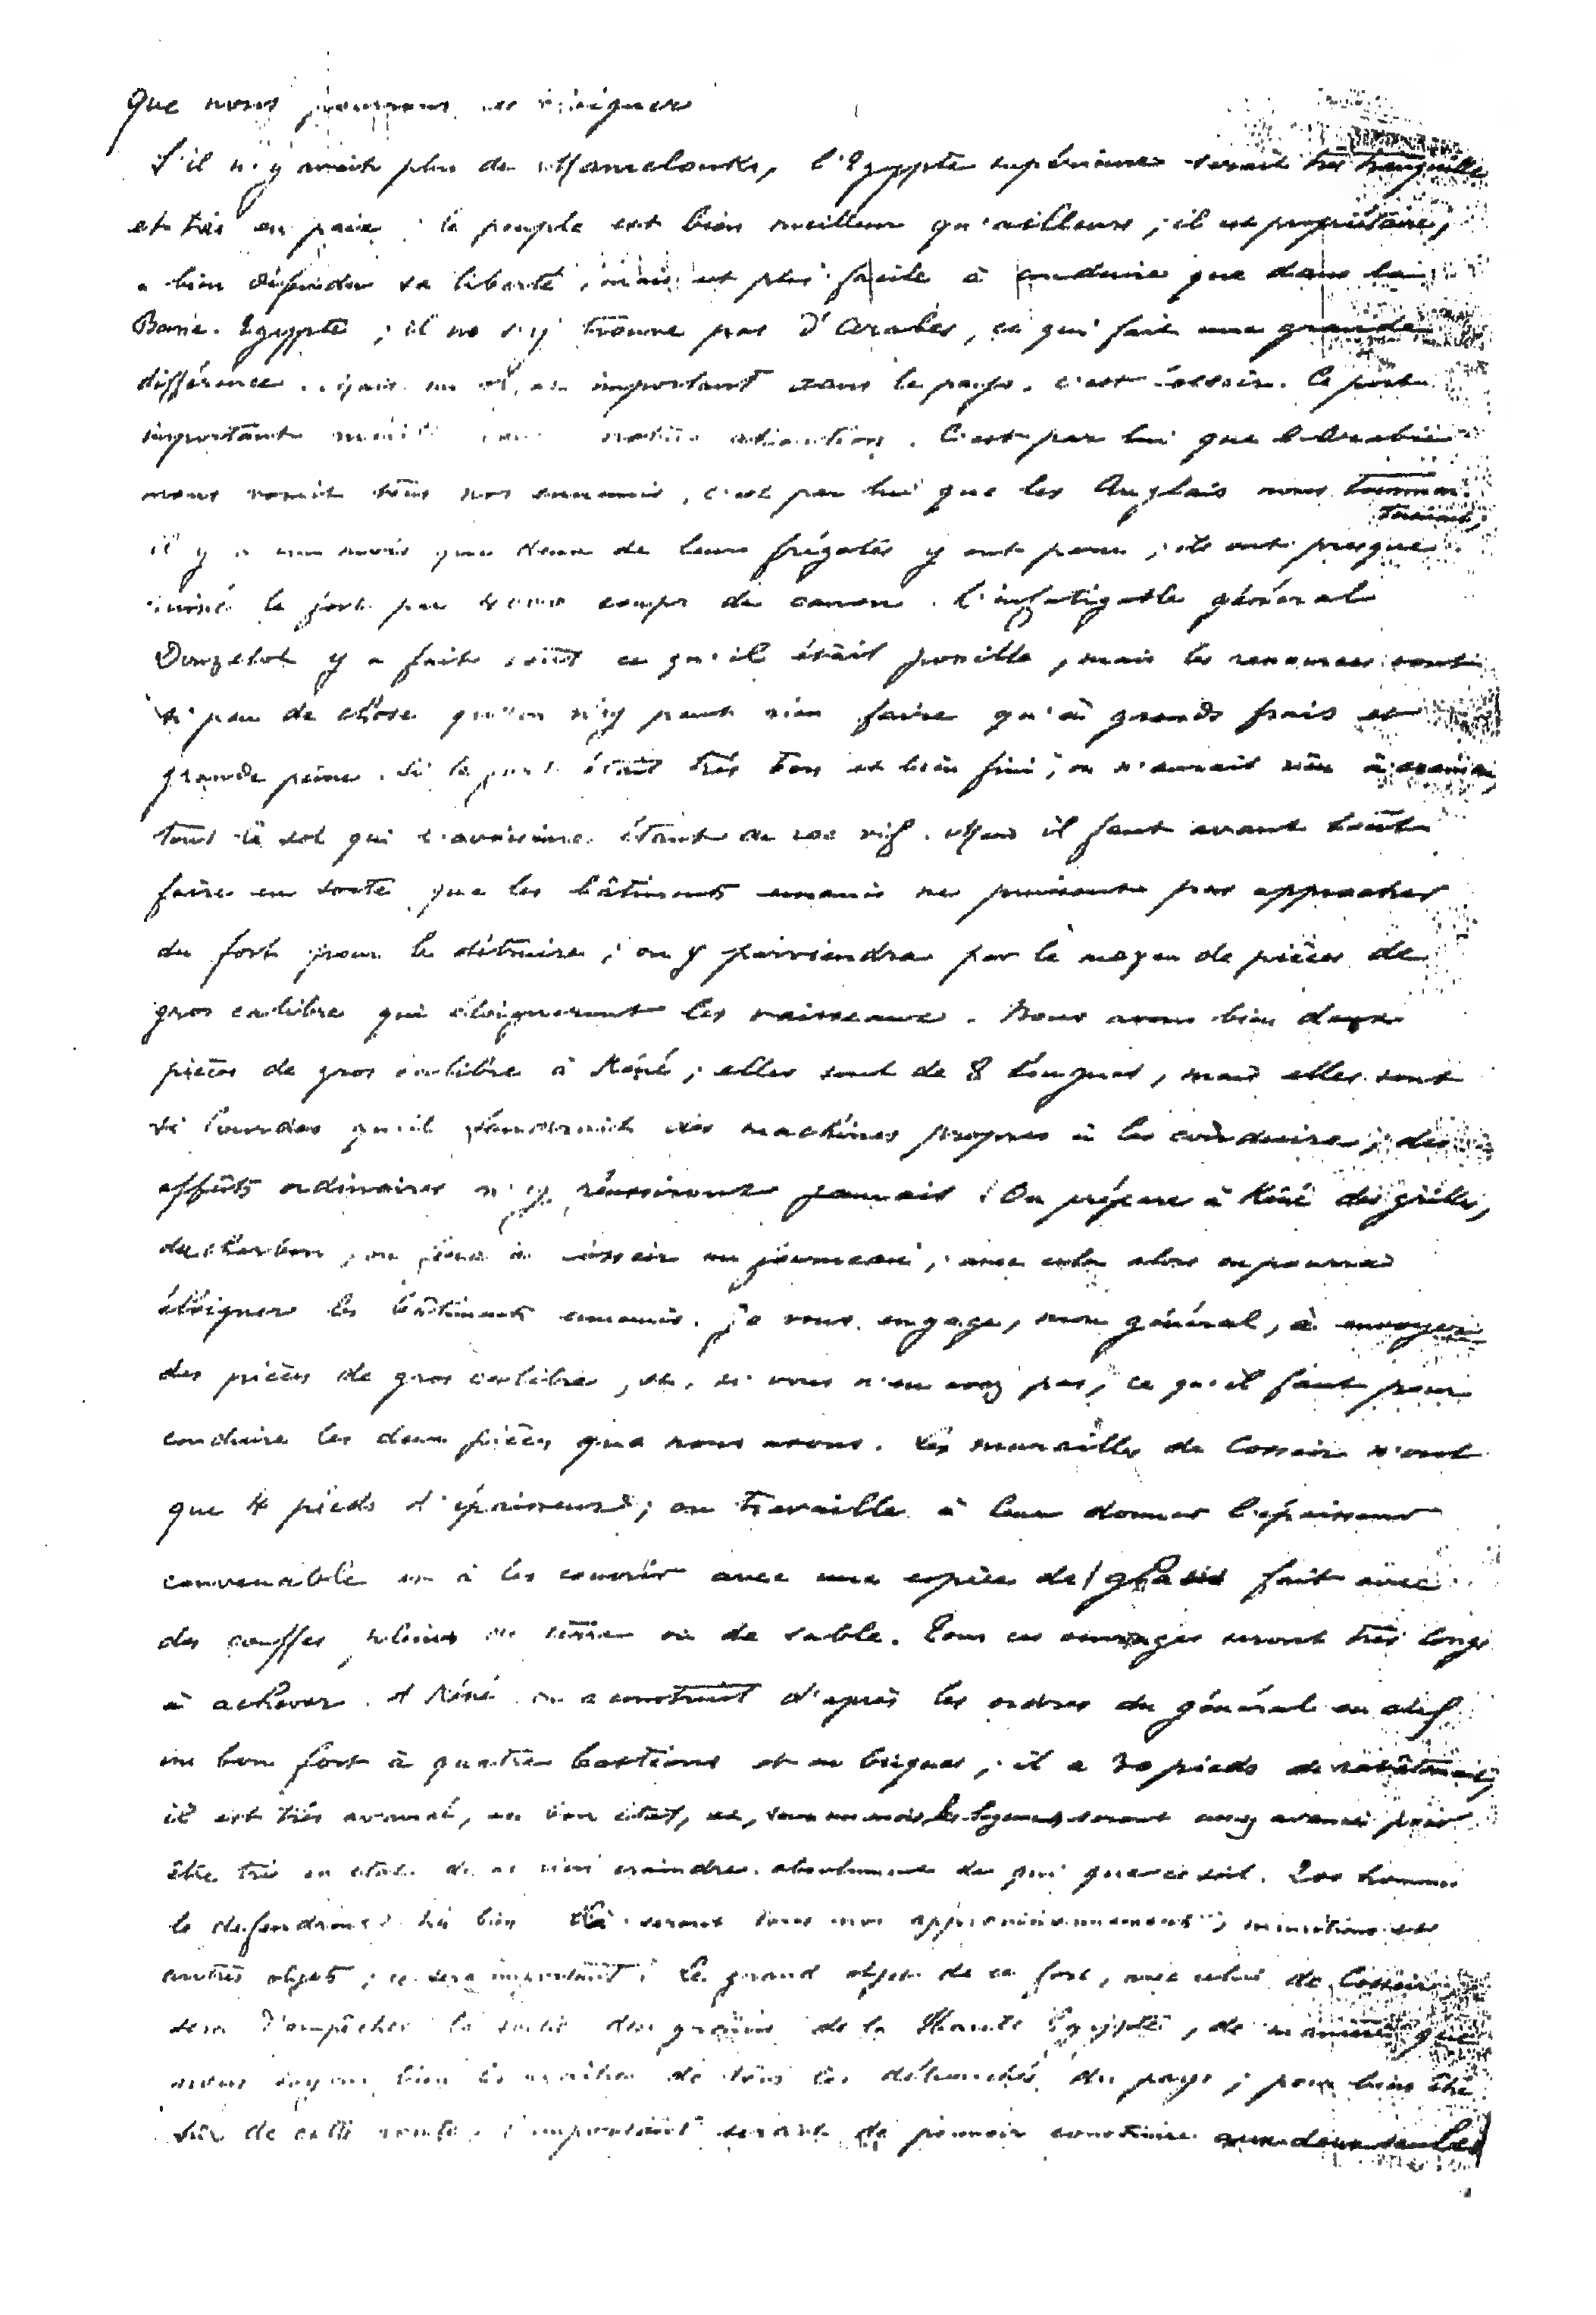 que nous pourrons les éloigner
S'il n'y avait plus de Mamelouks, l'Egypte supérieure serait très tranquille
et très en paix ; le peuple est bien meilleur qu'ailleurs ; il est propriétaire,
a bien défendu sa liberté, mais est plus facile à conduire que dans la
Basse-Egypte ; il ne s'y trouve pas d'Arabes, ce qui fait une grande
différence. important dans le pays, c'est Cosseir. Ce port
important mérite notre attention. C'est par lui que l'Arabie
nous vomit tous nos ennemis, c'est par lui que les Anglais nous tourmen-
teraient,
il y a un mois que deux de leurs frégates y ont paru ; ils ont presque
ruiné le fort par 4000 coups de canon. L'infatigable général
Donzelot y a fait tout ce qu'il était possible, mais les ressources sont
si peu de chose qu'on n'y peut rien faire qu'à grands frais et
grande peine. Si le port était très bon et bien fini, on n'aurait rien à craindre,
tout le sol qui l'avoisine étant de roc vif. Mais il faut avant tout
faire en sorte que les bâtiments ennemis ne puissent pas approcher
du fort pour le détruire ; on y parviendra par le moyen de pièces de
gros calibre qui éloigneront les vaisseaux. Nous avons bien deux
pièces de gros calibre à Kéné ; elles sont de 8 longues, mais elles sont
si lourdes qu'il faudrait des machines propres à les conduire ; des
affûts ordinaires n'y réussiront jamais. On prépare à Kéné des grilles,
du charbon, on fera à Cosseir un fourneau ; avec cela alors on pourra
éloigner les bâtiments ennemis. Je vous engage, mon général, à envoyer
des pièces de gros calibre, et, si vous n'en avez pas, ce qu'il faut pour
conduire les deux pièces que nous avons. Les murailles de Cosseir n'ont
que 4 pieds d'épaisseur ; on travaille à leur donner l'épaisseur
convenable et à les couvrir avec une espèce de glacis fait avec
des couffes pleines de terre ou de sable. Tous ces ouvrages seront très longs
à achever. A Kéné on a construit d'après les ordres du général en chef
un bon fort à quatre bastions et en briques ; il a 30 pieds de revêtement,
il est très avancé, en bon état, et, sous un mois, les logements seront assez avancés pour
être très en état de ne rien craindre absolument de qui que ce soit. 200 hommes
le défendront très bien. Là seront tous nos approvisionnements, munitions et
autres objets ; ce sera important. Le grand objet de ce fort, avec celui de Cosseir,
sera d'empêcher la sortie des grains de la Haute Egypte, de manière que
nous soyons bien les maîtres de tous les débouchés du pays ; pour bien être
sûr de cette route, l'important serait de pouvoir construire aux deux seules